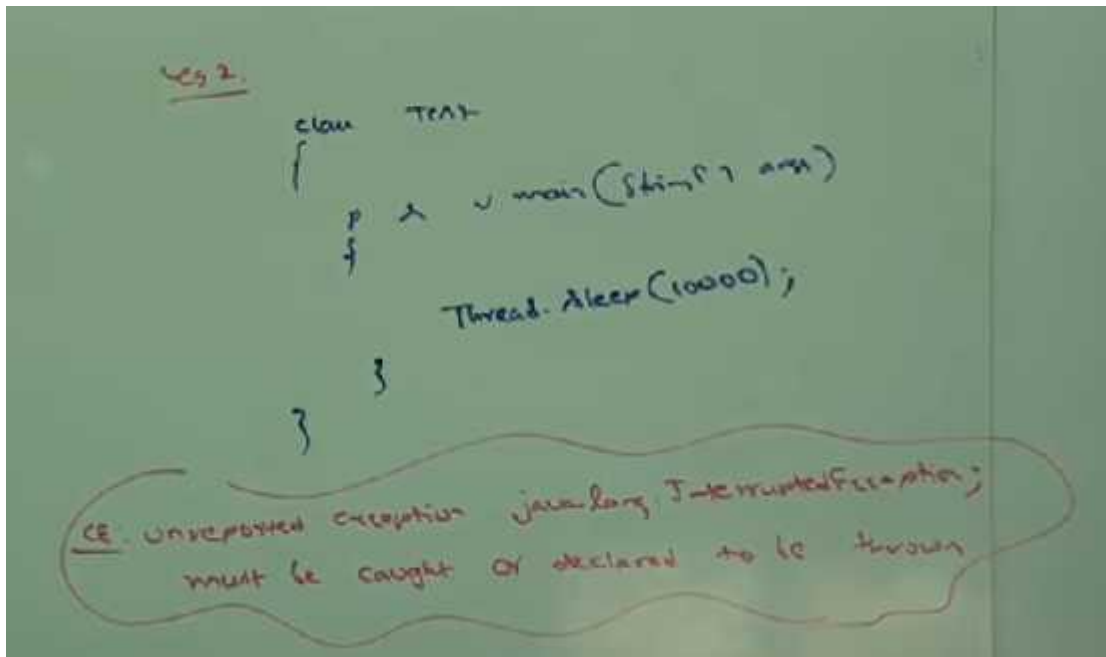 eg 2.
class Test
{
p s v main(String[] args)
{
Thread.sleep(10000);
}
}
CE: unreported exception java.lang.InterruptedException;
must be caught or declared to be thrown